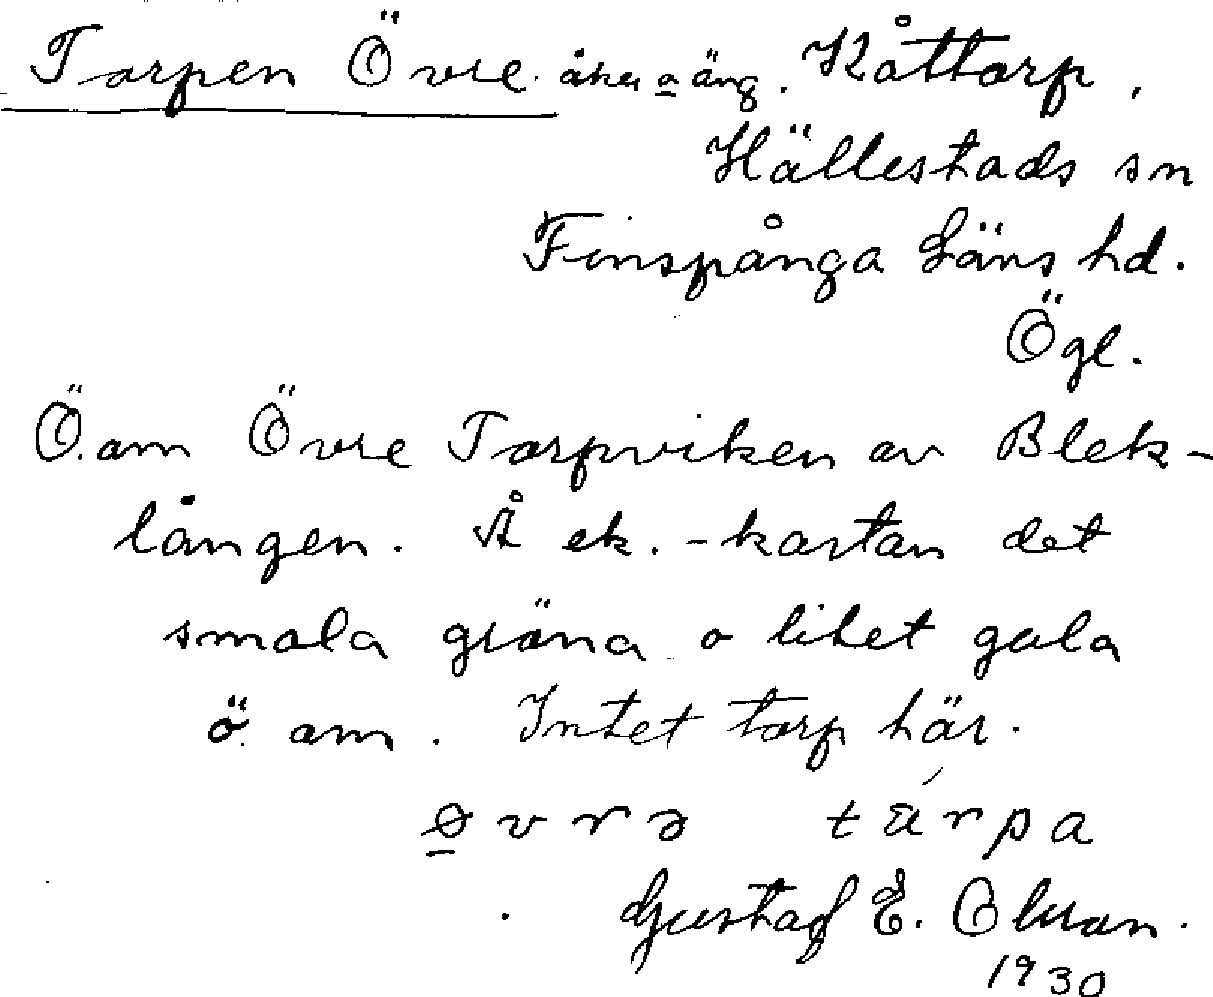 Torpen Övre. åker o äng. Kåttorp,
Hällestads sn
Finspånga Läns hd.
Ögl.
Ö. om Övre Torpviken av Blek-
lången. Å ek.-kartan det
smala gröna o litet gula
ö. om. Intet torp här.
øvrə
Gustaf E.
1930